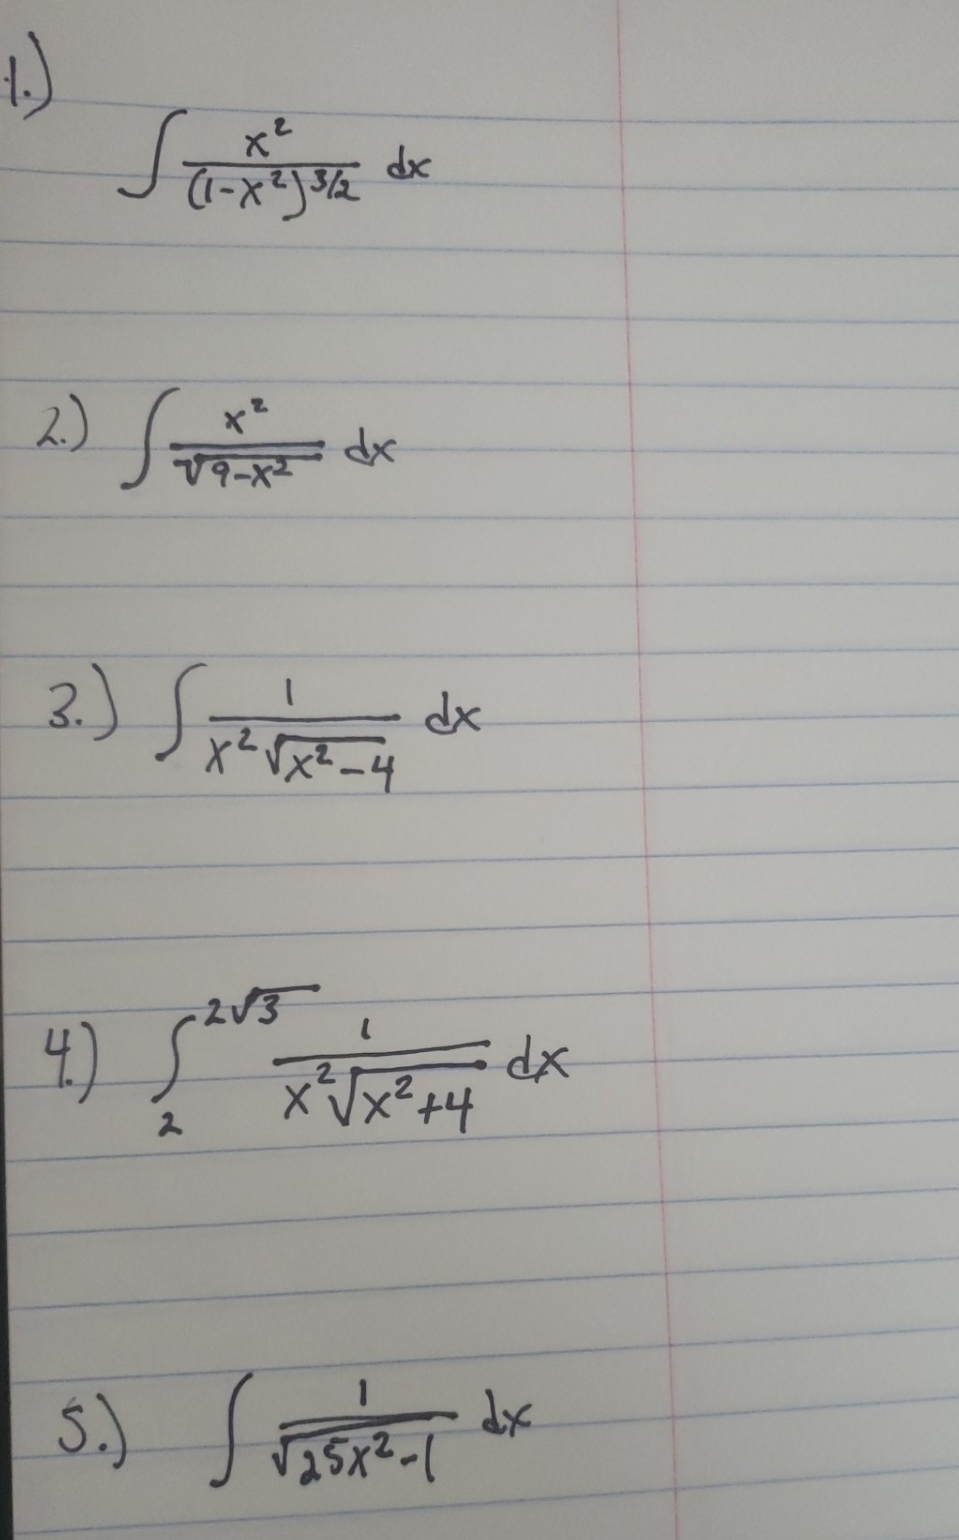 1.)
∫ x²/(1-x²)^3/2 dx
2.) ∫ x²/√9-x² dx
3.) ∫ 1/x²√x²-4 dx
4.) ∫₂^2√3 1/x²√x²+4 dx
5.) ∫ 1/√25x²-1 dx